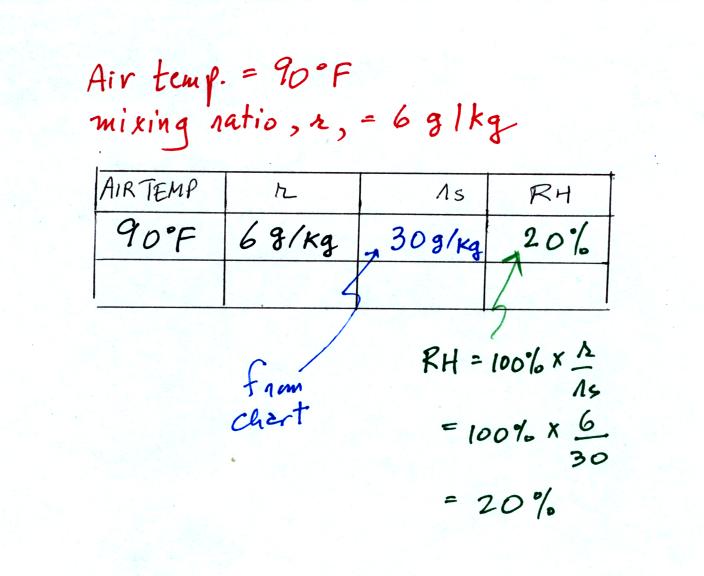 Air temp. = 90°F
mixing ratio, r, = 6 g/kg
AIR TEMP r rs RH
90°F 6 g/kg 30 g/kg 20%
from chart
RH = 100% x r/rs
= 100% x 6/30
= 20%